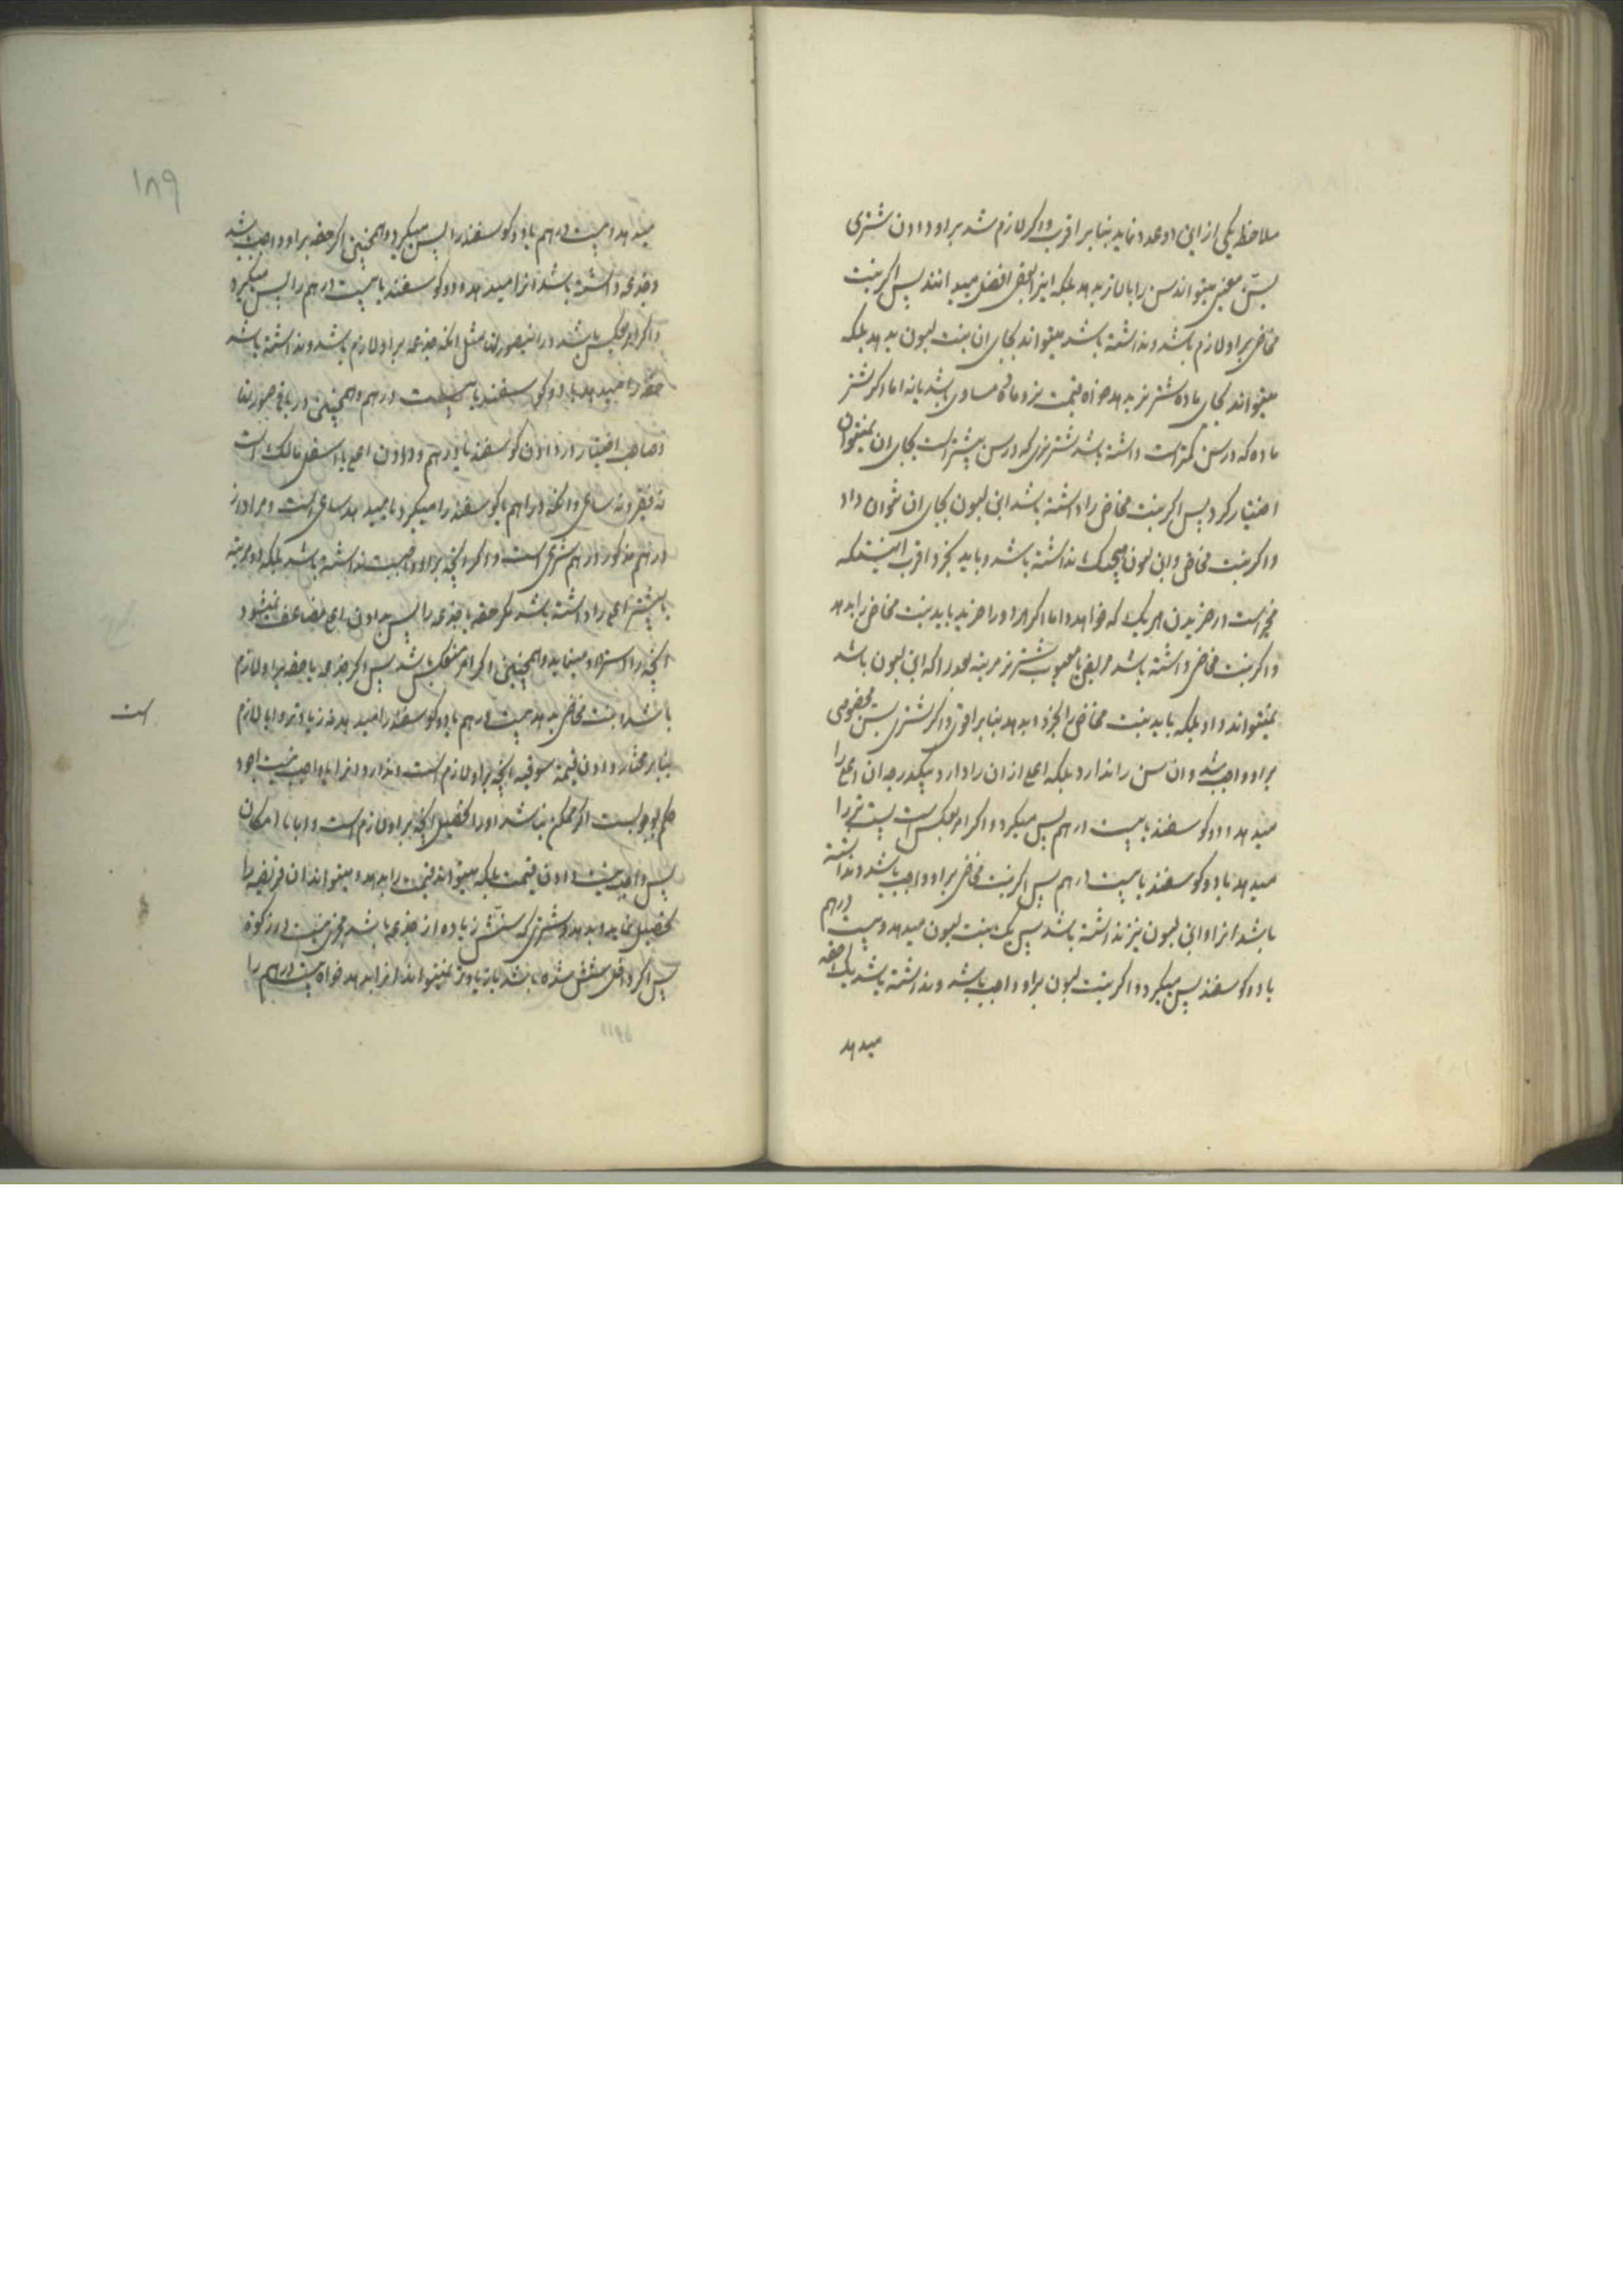 ملاحظه یکی از این دو عدد نماید بنا بر اقرب و اگر لازم شد بر او دادن شتری
بسن معین میتواند سن را بالاتر بدهد بلکه اینرا بعضی افضل میدانند پس اگر بنت
مخاض بر او لازم باشد و نداشته باشد میتواند بجای ان بنت لبون بدهد بلکه
میتواند بجای ماده شتر نر بدهد خواه قیمت نر و ماده مساوی باشد یا نه اما اگر شتر
ماده که در سن کمتر است داشته باشد شتر نری که در سن بیشتر است بجای ان نمیتوان
اختیار کرد پس اگر بنت مخاض را داشته باشد ابن لبون بجای ان نتوان داد
و اگر بنت مخاض و ابن لبون هیچیک نداشته باشد و باید بخرد اقرب اینستکه
مخیر است در خریدن هر یک که خواهد و اما اگر هر دو را خرید باید بنت مخاض را بدهد
و اگر بنت مخاض داشته باشد مریض یا معیوب شتر نر مرتبه بعد را که ابن لبون باشد
نمیتواند داد بلکه باید بنت مخاض را بخرد و بدهد بنا بر اقوی و اگر شتری بسن مخصوصی
بر او واجب شد و ان سن را ندارد بلکه اعلی از ان را دارد بیکدرجه ان اعلی را
میدهد و دو گوسفند یا بیست درهم پس میگیرد و اگر امر بعکس است پست تر را
میدهد با دو گوسفند یا بیست درهم پس اگر بنت مخاض بر او واجب باشد و نداشته
باشد انرا و ابن لبون نیز نداشته باشد پس یک بنت لبون میدهد و بیست درهم
یا دو گوسفند پس میگیرد و اگر بنت لبون بر او واجب باشد و نداشته باشد یک حقه
میدهد
۱۸۹
میدهد و بیست درهم یا دو گوسفند را پس میگیرد و همچنین اگر حقه بر او واجب شد
و جذعه داشته باشد انرا میدهد و دو گوسفند یا بیست درهم را پس میگیرد
و اگر امر بعکس باشد در اینصورتها مثل انکه جذعه بر او لازم باشد و نداشته باشد
حقه را میدهد با دو گوسفند یا بیست درهم و همچنین در باقی صورتها
و صاحب اختیار در دادن گوسفند یا درهم و دادن اعلی یا اسفل مالک است
نه فقیر و نه ساعی و انکه دراهم یا گوسفند را میگیرد یا میدهد ساعی است و مراد از
درهم مذکور درهم شرعی است و اگر انچه بر او واجبست نداشته باشد بلکه دو مرتبه
یا بیشتر اعلی را داشته باشد مگر حقه یا جذعه را پس بدادن اعلی مضاعف نمیشود
انچه را استرداد مینماید و همچنین اگر امر منعکس شد پس اگر جذعه یا حقه بر او لازم
باشد و بنت مخاض بدهد بیست درهم یا دو گوسفند را میدهد نه زیادتر و ایا لازم
است
بنا بر مختار دادن قیمة سوقیه انچه بر او لازم است و ندارد انرا یا واجب نیست اجود
حکم بوجوبست اگر ممکن نباشد او را تحصیل انچه بر او لازم است و اما با امکان
پس واجب نیست دادن قیمت بلکه میتواند قیمت را بدهد و میتواند ان فریضه را
تحصیل نماید و بدهد و شتری که سنش زیاده از جذعه باشد مجزی نیست در زکوة
پس اگر داخل شش شده باشد یا زیادتر نمیتواند انرا بدهد خواه بیست درهم را